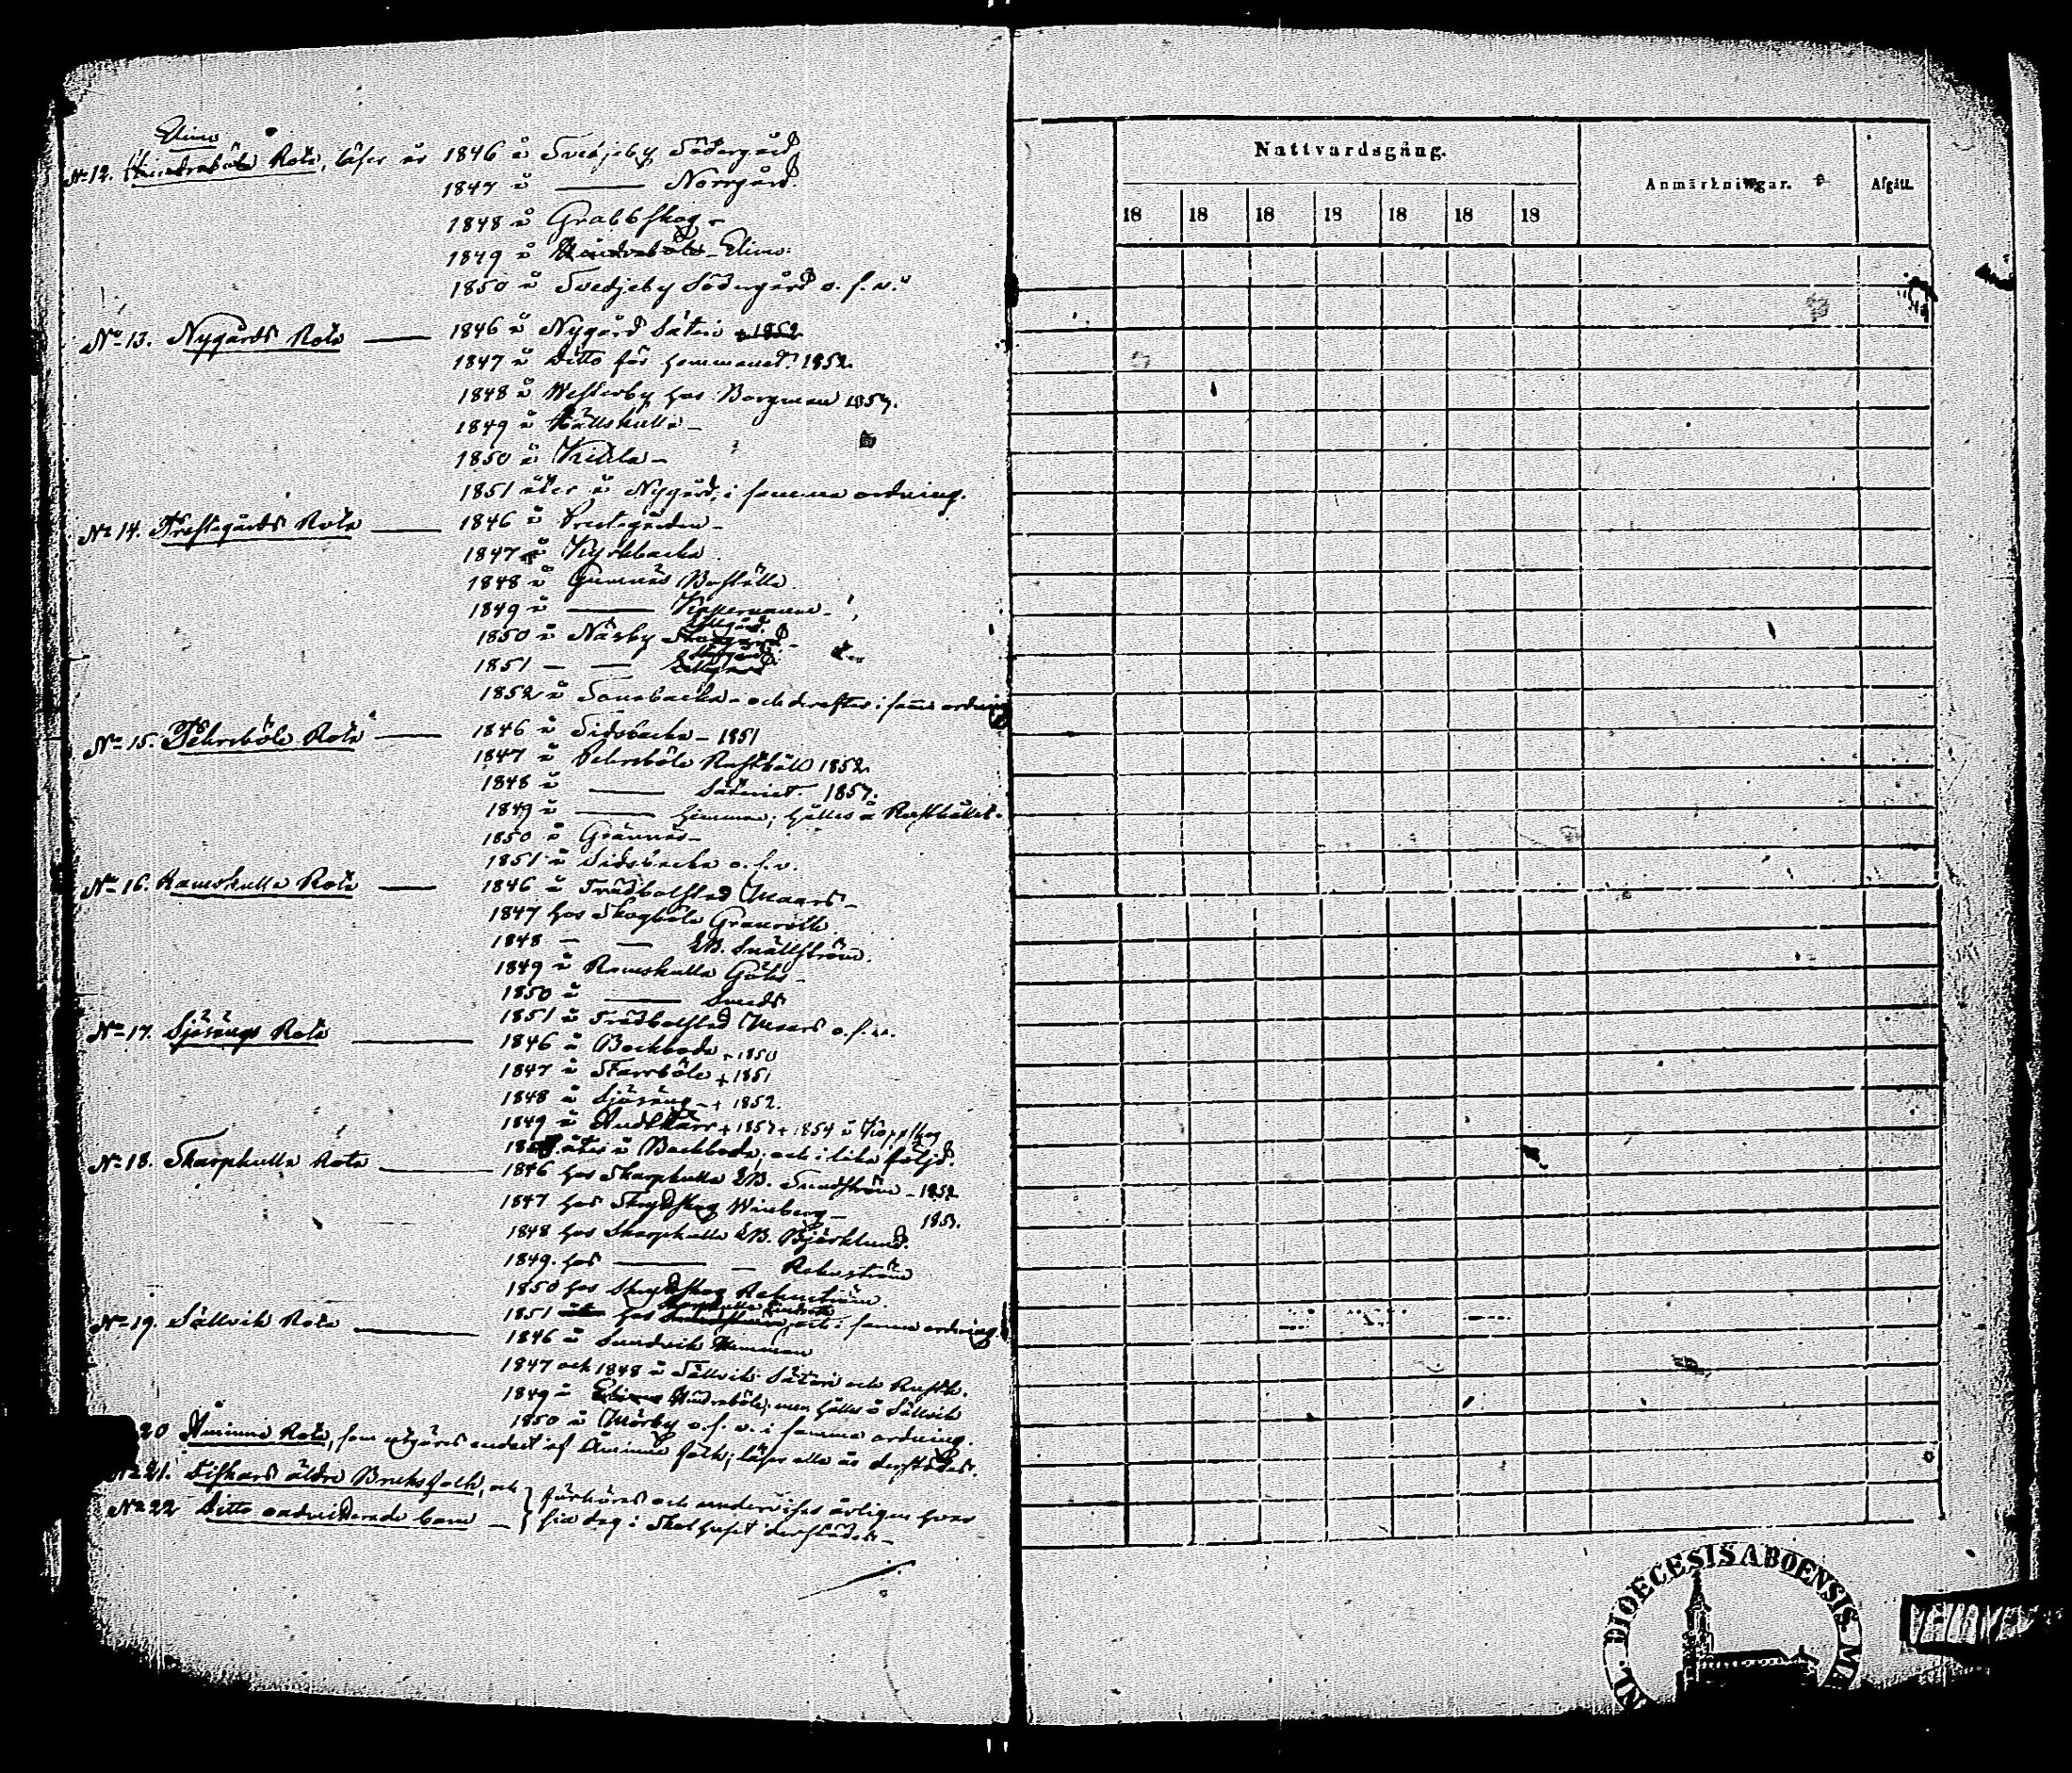 Elimo
No 12. Hindraböle Rote, läser år 1846 å Svedjeby Södergård
1847 å —— Norrgård.
1848 å Grabbskog –
1849 å Hindraböle – Elimo.
1850 å Svedjeby Södergård o. s. v.
No 13. Nygårds Rote —— 1846 å Nygård Säteri 1852
1847 å Ditto för hemmanet. 1852.
1848 å Westerby hos Borgman 1853.
1849 å Källskulla –
1850 å Kihla –
1851 åter å Nygård, i samma ordning.
No 14. Prestegårds Rote —— 1846 å Prestegården –
1847 å Kyrkbacka
1848 å Gumnäs Boställe.
1849 å ——
Lillgård.
1850 å Näsby
1851 – ——
1852 å Tonsbacka – och derefter i samma ordning
No 15. Pehrsböle Rote —— 1846 å Sidsbacka – 1851
1847 å Pehrsböle Rusthåll 1852.
1848 å —— Säteriet 1853.
1849 å —— hemman; hålles å Rusthållet.
1850 å Grännäs –
1851 å Sidsbacka o. s. v.
No 16. Ramskulla Rote —— 1846 å Trädbolstad Maars –
1847 hos Skogböle Granroth
1848 – —— LB. Snällström.
1849 å Ramskulla Göks –
1850 å —— Smeds
1851 å Trädbolstad Maars o. s. v.
No 17. Sjösängs Rote —— 1846 å Bockboda + 1850
1847 å Starrböle + 1851
1848 å Sjösäng – + 1852.
1849 å + 1853 + 1854 å Koppskog
åter å Bockboda, och i lika följd.
No 18. Skarpkulla Rote —— 1846 hos Skarpkulla LB. Sundström – 1852
1847 hos Skogskog Wineberg – 1853.
1848 hos Skarpkulla LB. Björklund.
1849. hos —— – Rehnström
1850 hos Rehnström.
1851 hos och i samma ordning.
No 19. Sällvik Rote —— 1846 å Sundvik Hemman
1847 och 1848 å Sällvik Säteri och Rusth.
1849 å Hindraböle, men hålles å Sällvik
1850 å Mörby o. s. v. i samma ordning.
20 Åminne Rote, som utgöres endast af Åminne folk; läser alla år derstädes.
No 21. Fiskars äldre Bruksfolk, och } förhöres och undervises årligen hvar
No 22 Ditto oadmitterade barn – } sin dag i Skolhuset derstädes –
Nattvardsgång.
Anmärkningar.
Afgått.
18 18 18 18 18 18 18
DIOECESIS ABOENSIS.